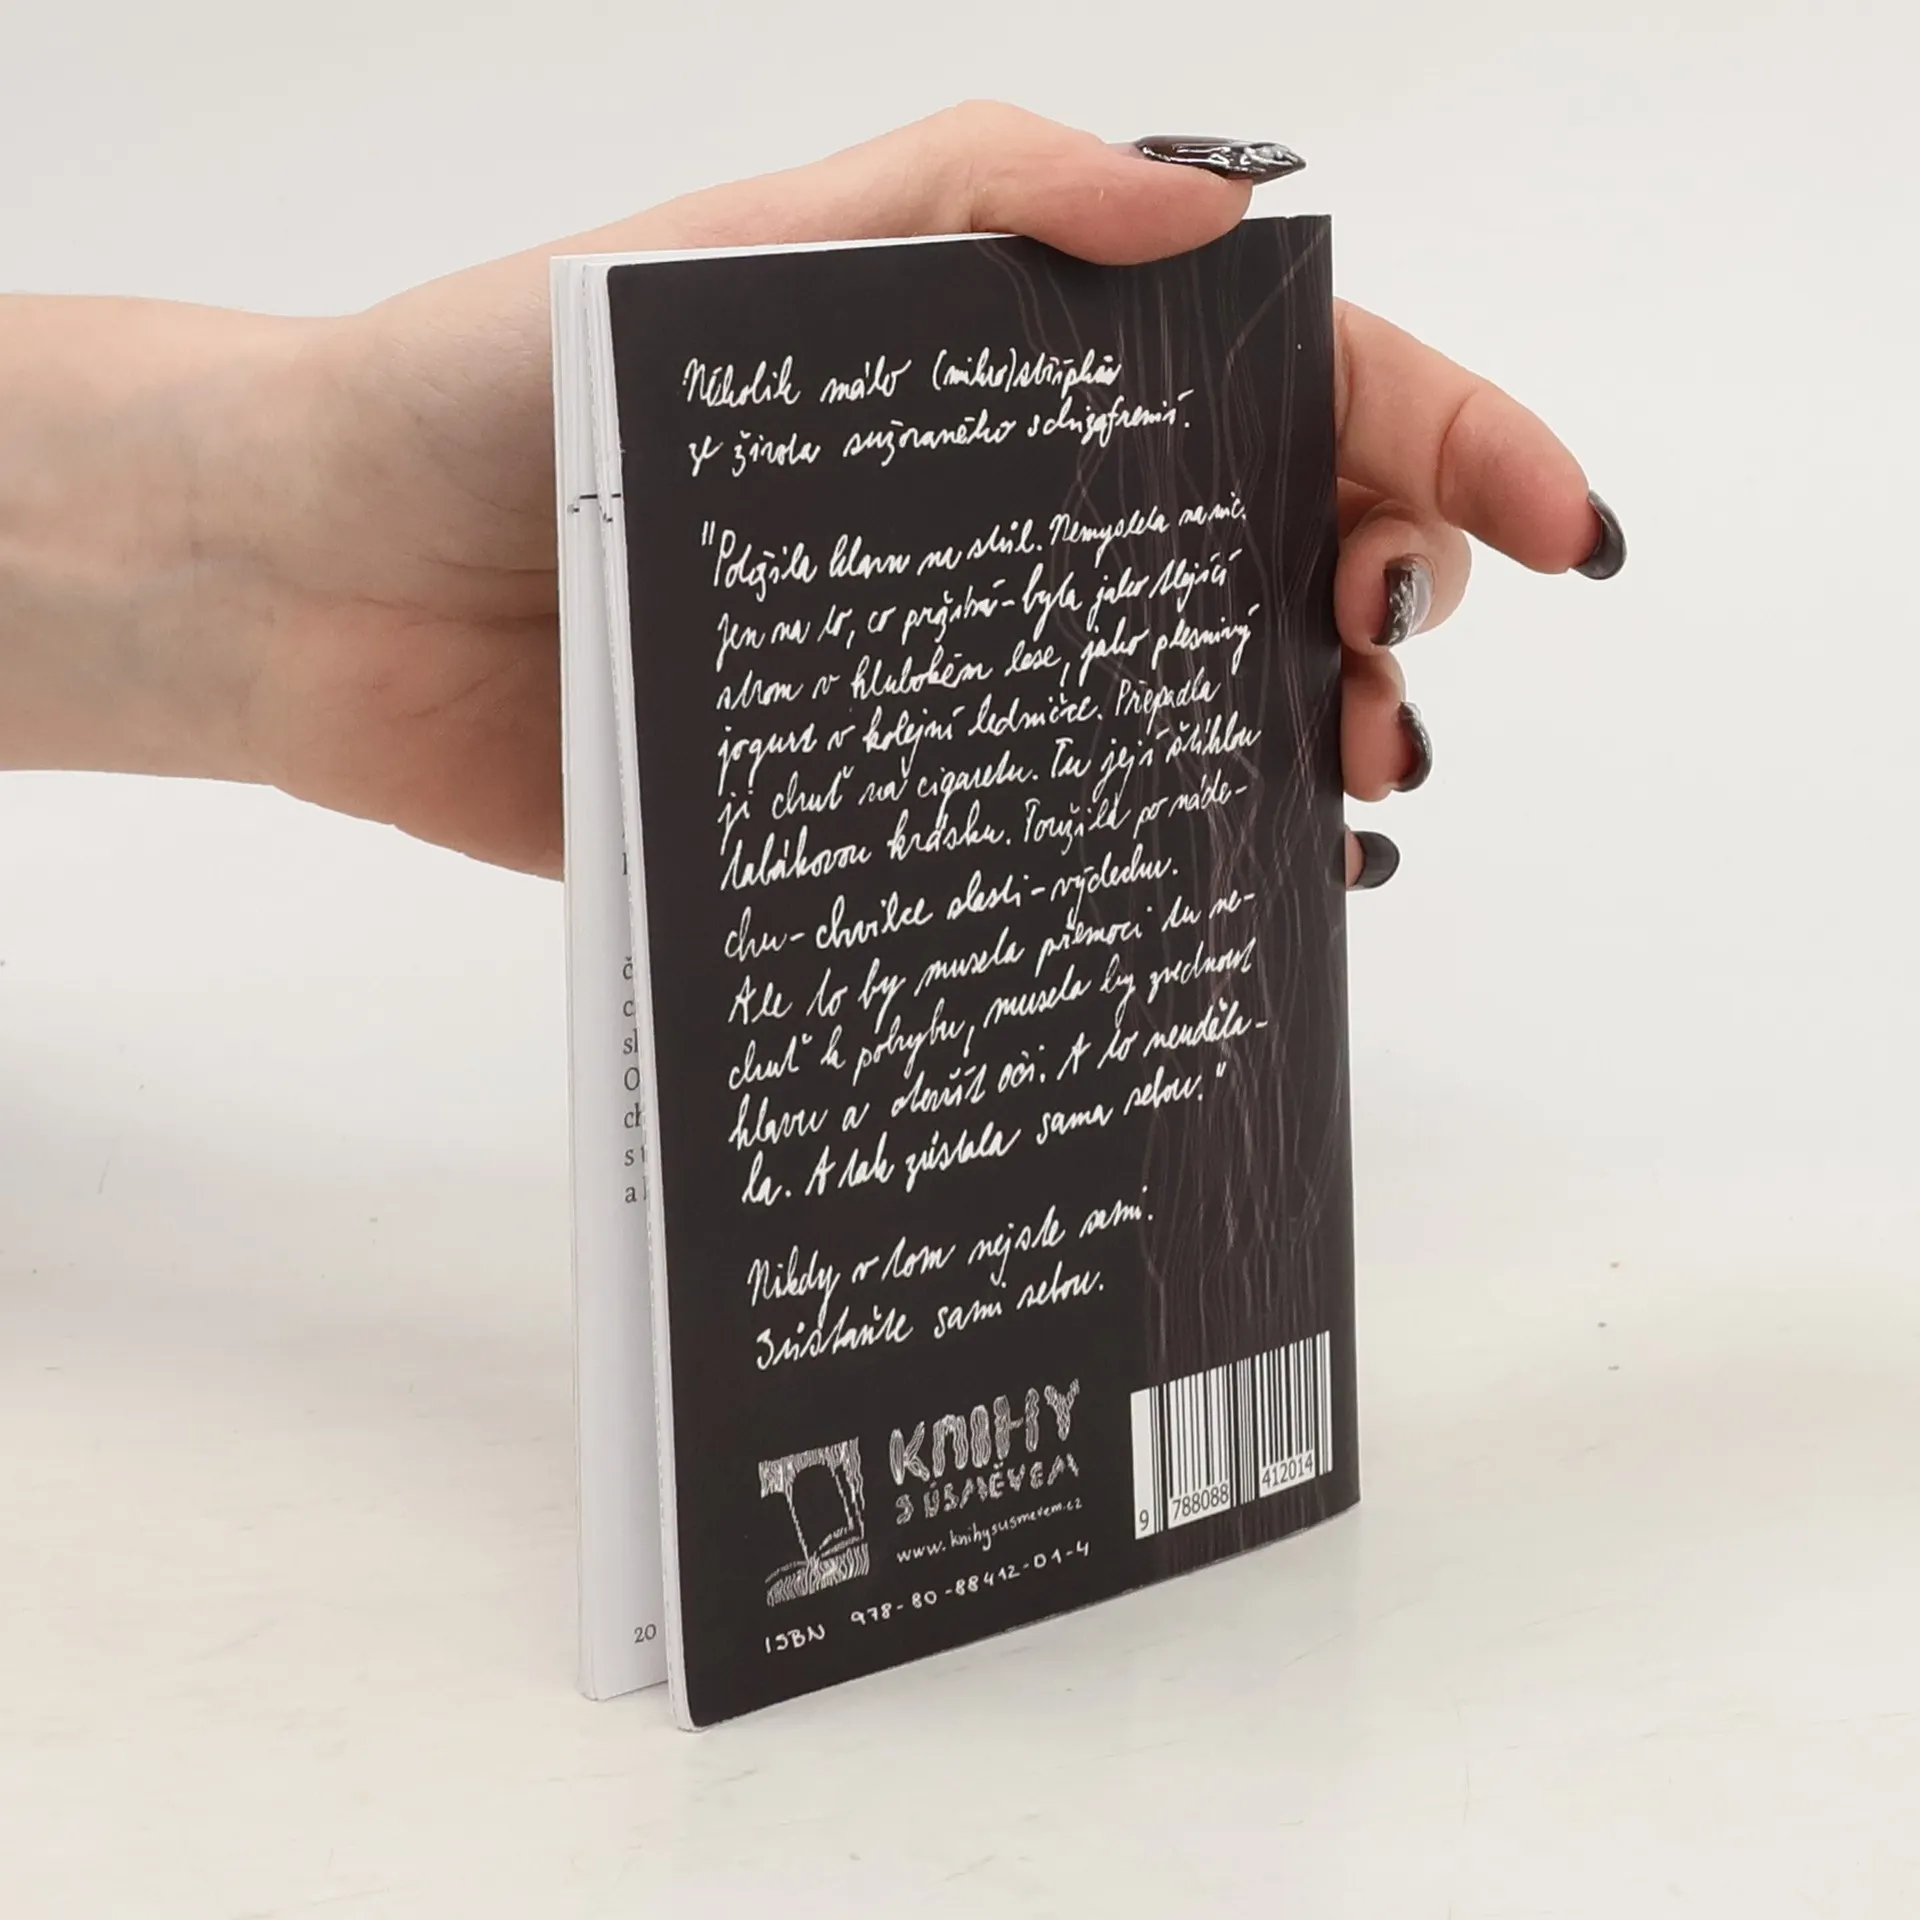 Několik málo (mikro)střípků
ze života sužovaného schizofrenií.
"Položila hlavu na stůl. Nemyslela na nic.
Jen na to, co prožívá – byla jako tlející
strom v hlubokém lese, jako plesnivý
jogurt v kolejní ledničce. Přepadla
ji chuť na cigaretu. Tu její štíhlou
tabákovou krásku. Toužila po náde-
chu – chvilce slasti – výdechu.
Ale to by musela přemoci tu ne-
chuť k pohybu, musela by zvednout
hlavu a otevřít oči. A to neuděla-
la. A tak zůstala sama sebou."
Nikdy v tom nejste sami.
Zůstaňte sami sebou.
KNIHY
S ÚSMĚVEM
www.knihysusmevem.cz
ISBN 978-80-88412-01-4
9 788088 412014
č
c
sl
O
ch
s t
a l
20